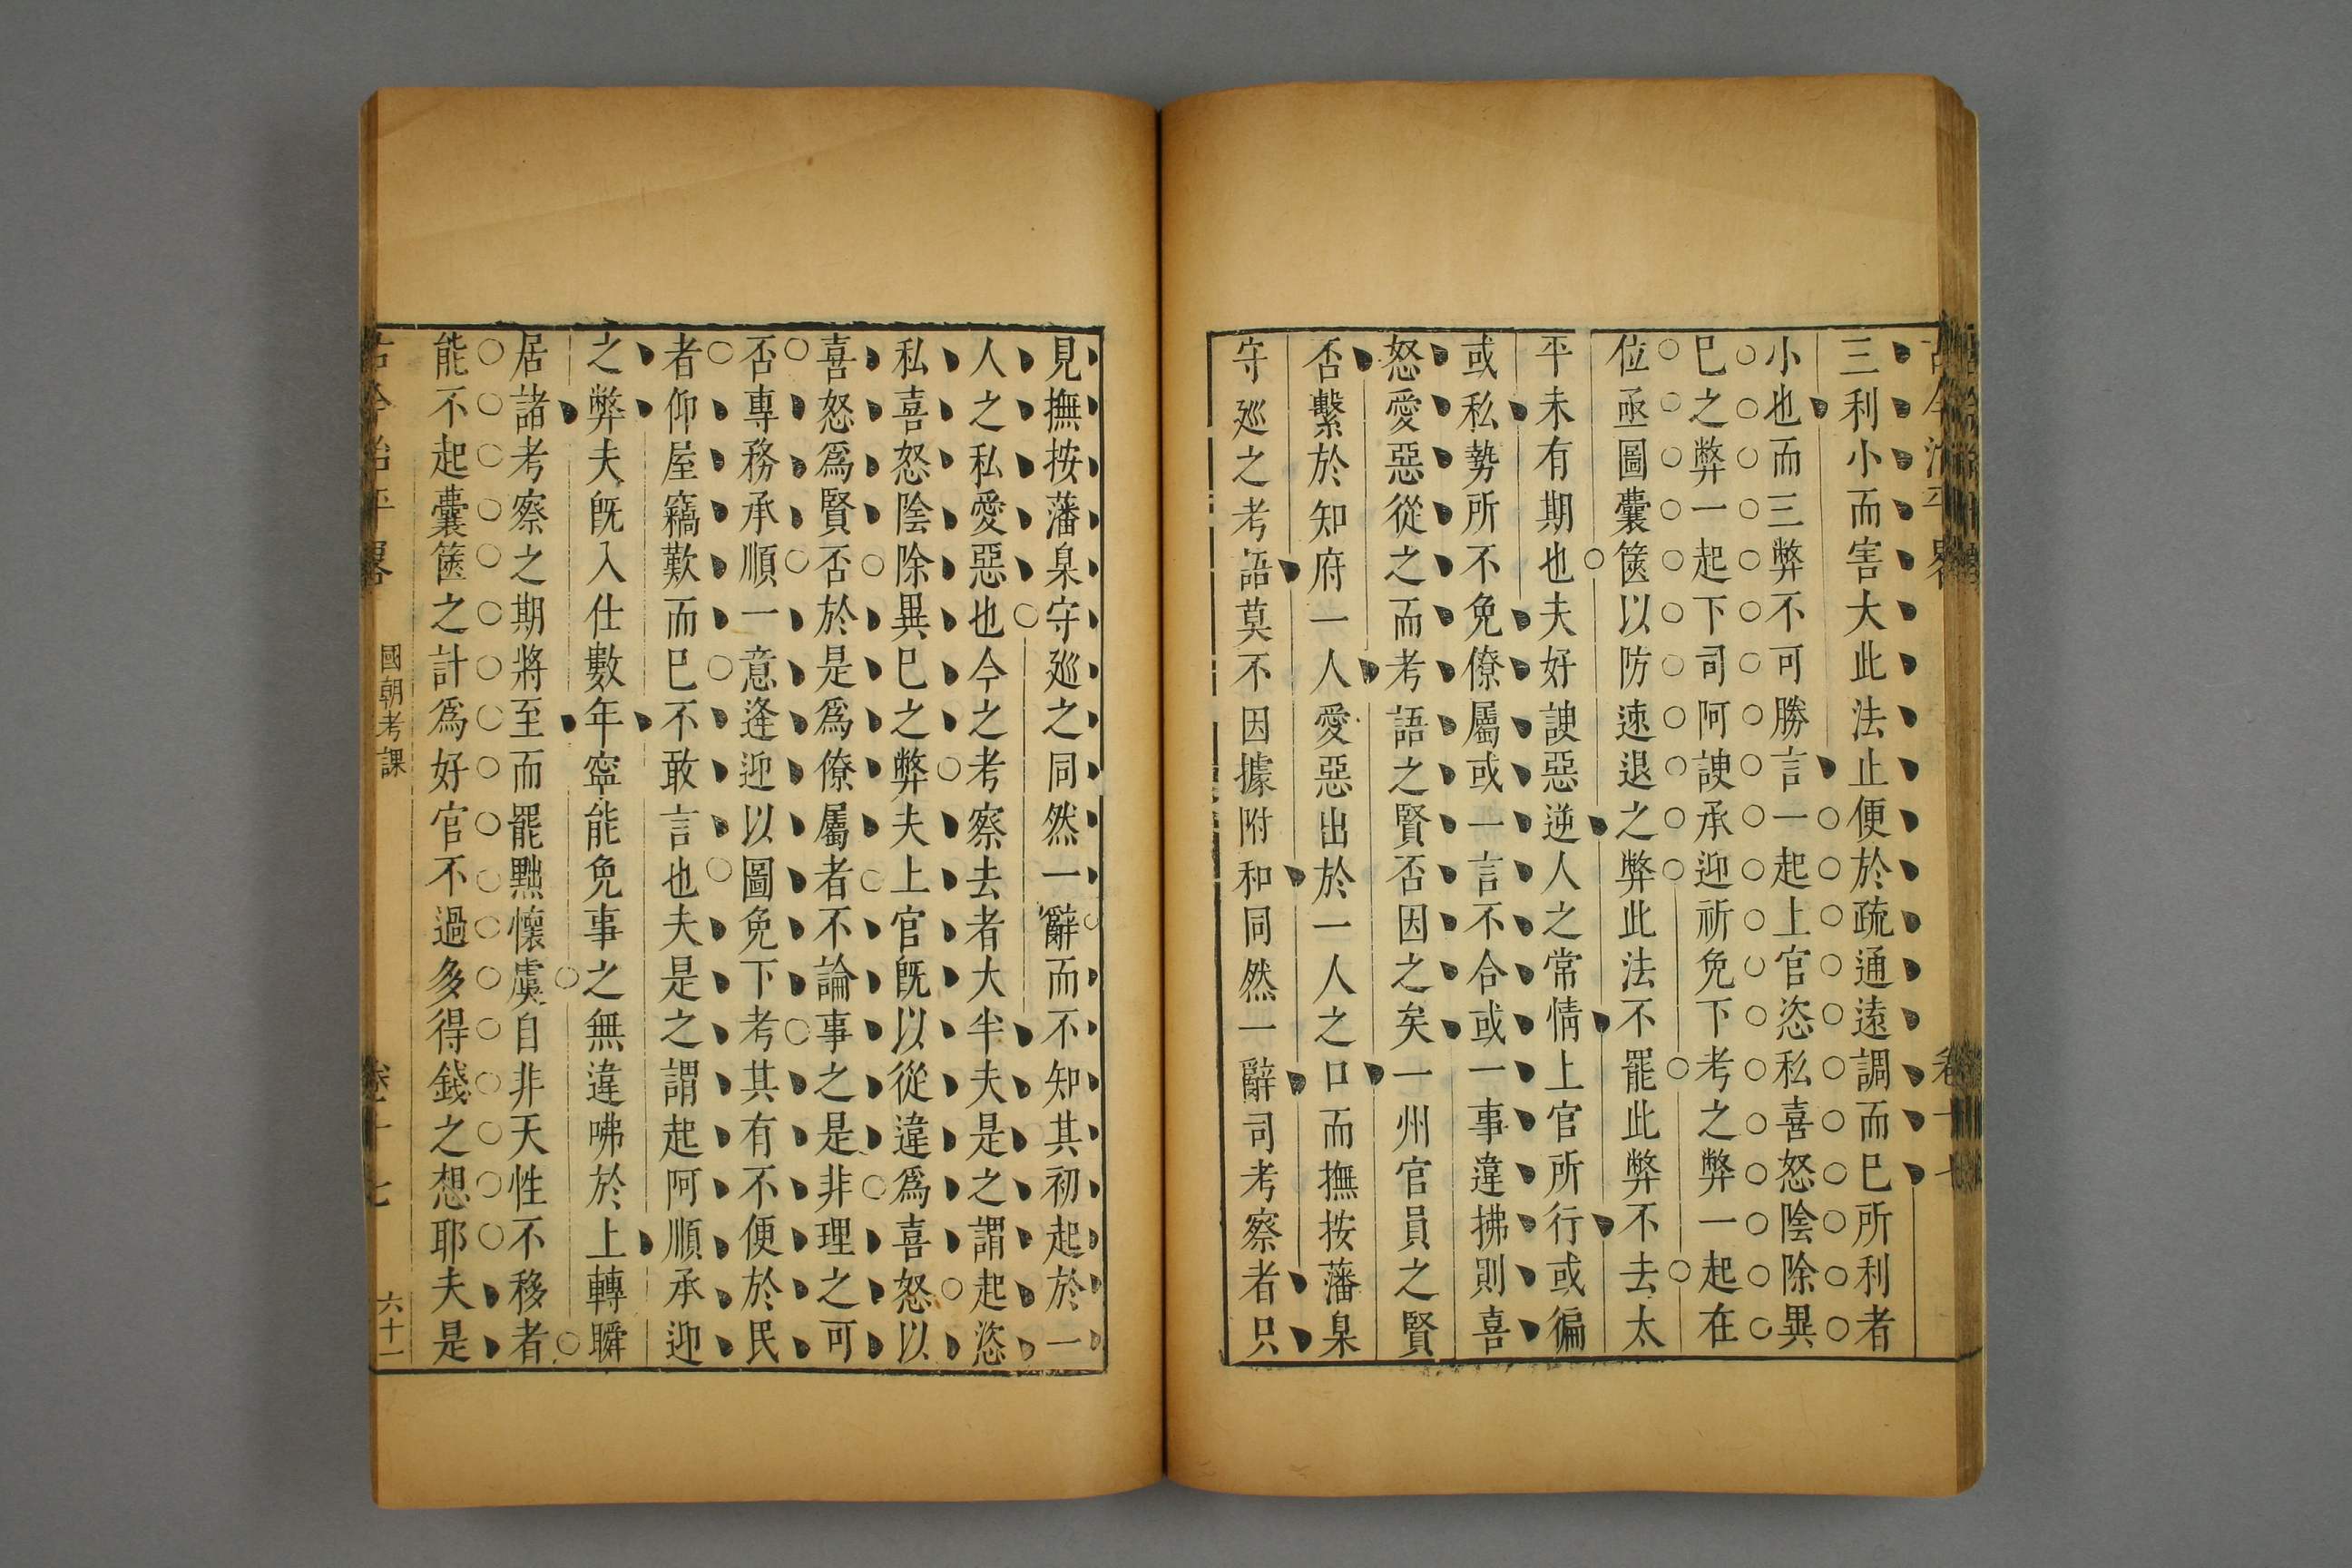 三利小而害大此法止便於疏通遠調而巳所利者
小也而三弊不可勝言一起上官恣私喜怒陰除異
巳之弊一起下司阿諛承迎祈免下考之弊一起在
位亟圖囊篋以防速退之弊此法不罷此弊不去太
平未有期也夫好諛惡逆人之常情上官所行或徧
或私勢所不免僚屬或一言不合或一事違拂則喜
怒愛惡從之而考語之賢否因之矣一州官員之賢
否繫於知府一人愛惡出於一人之口而撫按藩臬
守廵之考語莫不因據附和同然一辭司考察者只
見撫按藩臬守廵之同然一辭而不知其初起於一
人之私愛惡也今之考察去者大半夫是之謂起恣
私喜怒陰除異巳之弊夫上官旣以從違爲喜怒以
喜怒爲賢否於是爲僚屬者不論事之是非理之可
否專務承順一意逢迎以圖免下考其有不便於民
者仰屋竊歎而巳不敢言也夫是之謂起阿順承迎
之弊夫旣入仕數年寧能免事之無違咈於上轉瞬
居諸考察之期將至而罷黜懷虞自非天性不移者
能不起囊篋之計爲好官不過多得錢之想耶夫是
古今治平畧 國朝考課 卷十七 六十一